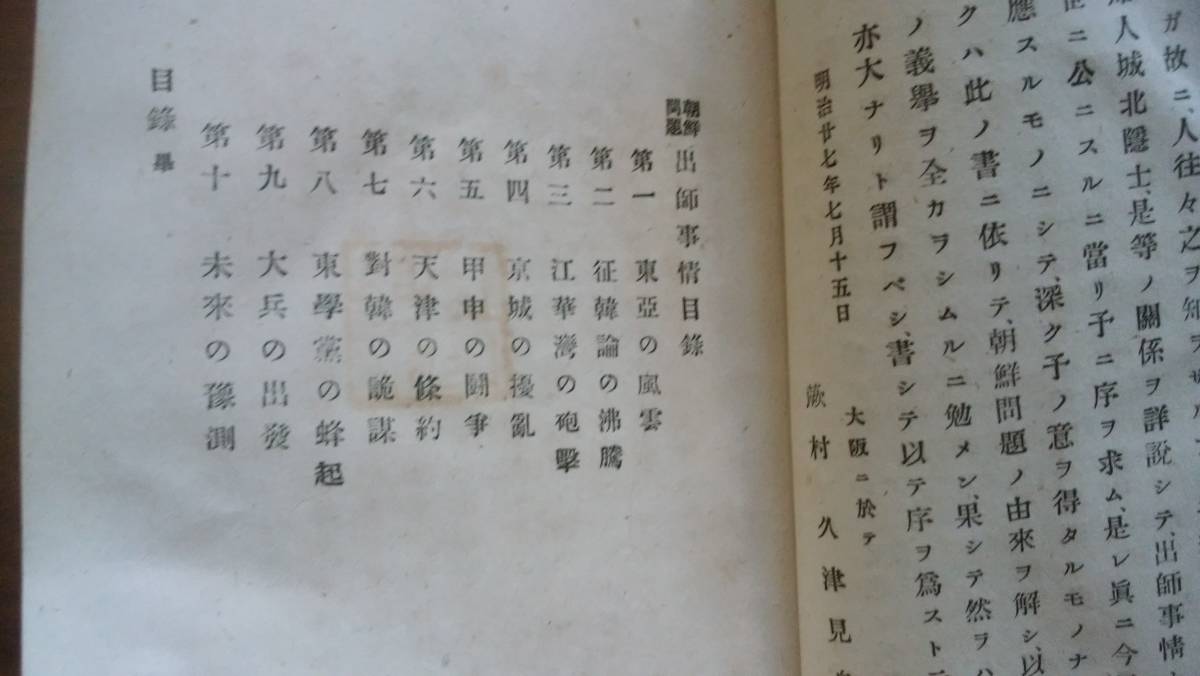 ガ故ニ、人往々之ヲ知
人城北隱士、是等ノ關係ヲ詳說シテ、出師事情
ニ公ニスルニ當リ予ニ序ヲ求ム、是レ眞ニ今
應スルモノニシテ、深ク予ノ意ヲ得タルモノナ
クハ此ノ書ニ依リテ、朝鮮問題ノ由來ヲ解シ、以
ノ義擧ヲ全カヲシムルニ勉メン、果シテ然ラハ
亦大ナリト謂フベシ、書シテ以テ序ヲ爲スト
大阪ニ於テ
明治廿七年七月十五日
蕨村 久津見
朝鮮問題 出師事情目錄
第一 東亞の風雲
第二 征韓論の沸騰
第三 江華灣の砲擊
第四 京城の擾亂
第五 甲申の鬪爭
第六 天津の條約
第七 對韓の詭謀
第八 東學黨の蜂起
第九 大兵の出發
第十 未來の豫測
目錄 畢